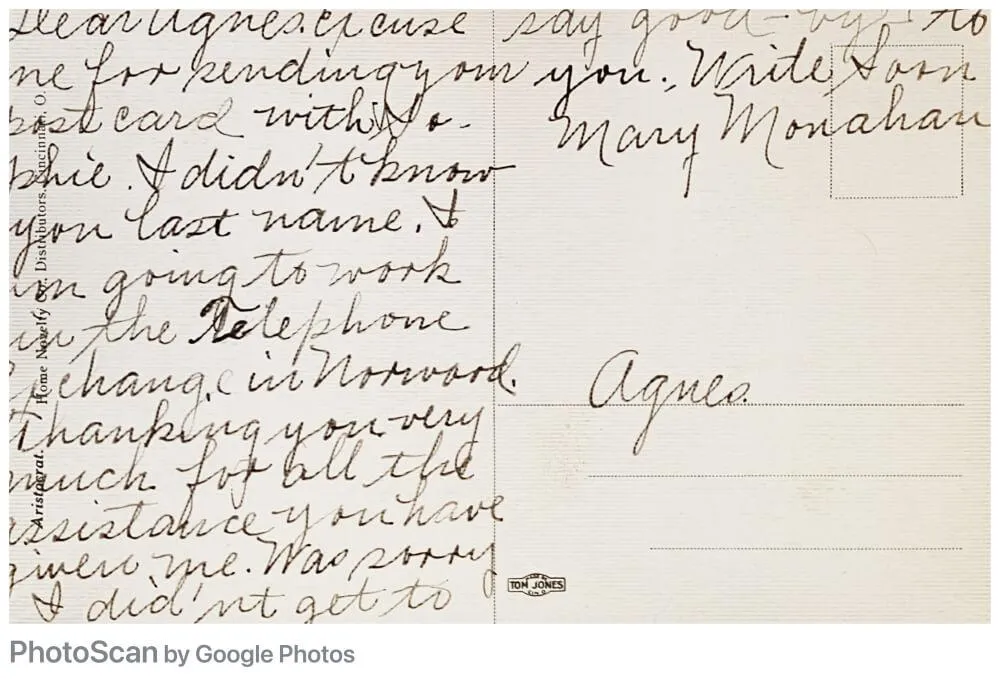 Dear Agnes. excuse
me for sending your
post card with So-
phie. I didn't know
you last name. I
am going to work
in the Telephone
Exchange in Norwood.
Thanking you very
much for all the
assistance you have
given me. Was sorry
I did'nt get to
say good-by to
you. Write Soon
Mary Monahan
Agnes.
Aristocrat. Home Novelty Co. Distributors, Cincinnati, O.
MADE BY
TOM JONES
CIN. O.
PhotoScan by Google Photos